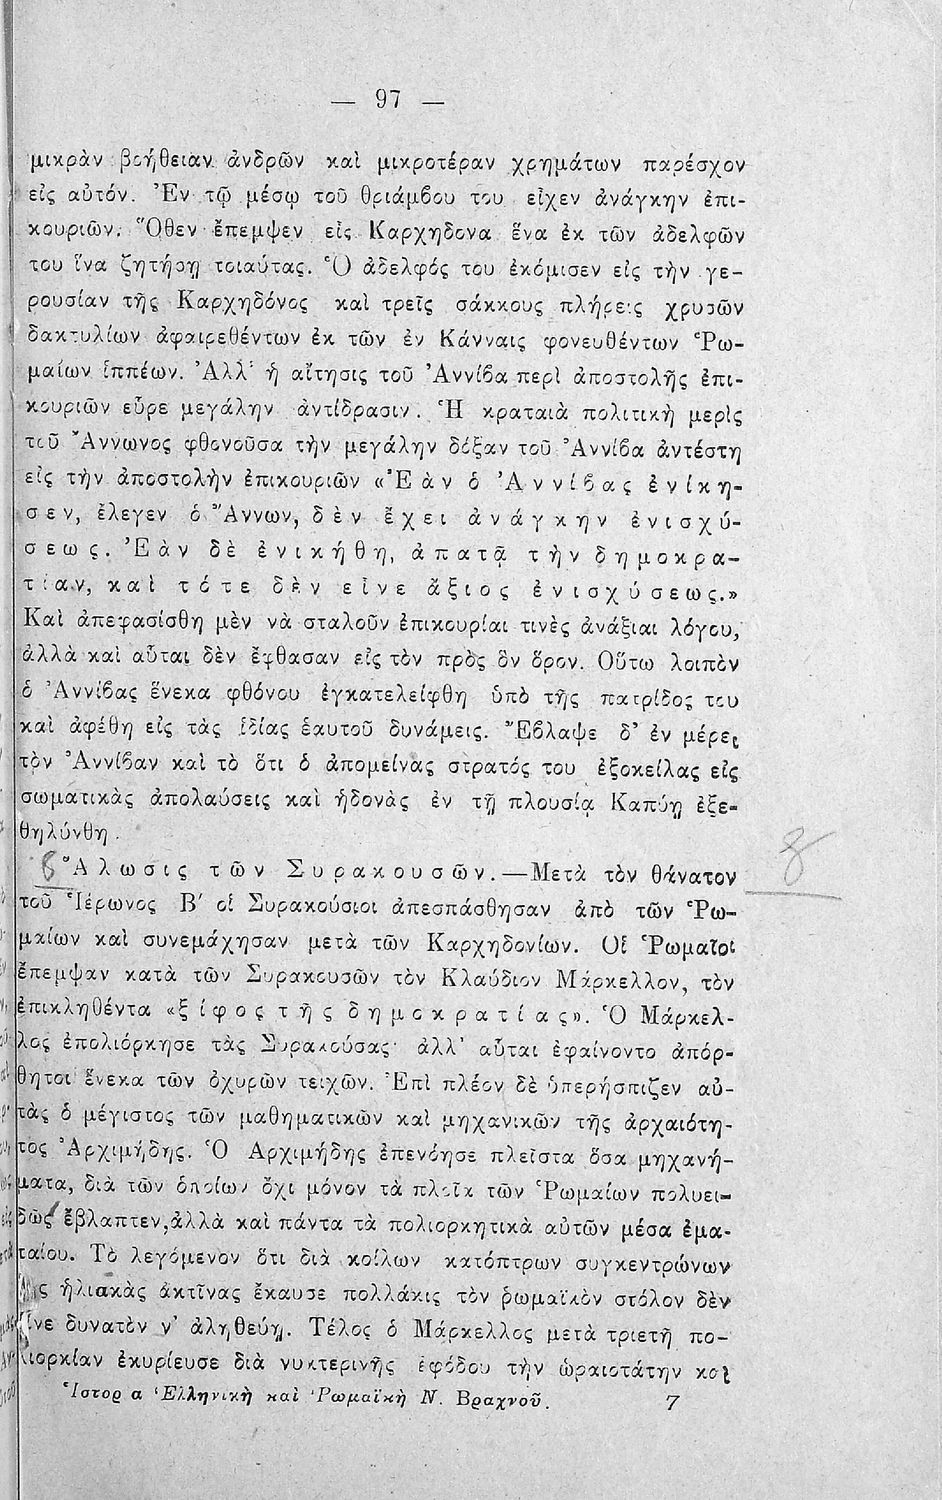 — 97 —
μικρὰν βοήθειαν ἀνδρῶν καὶ μικροτέραν χρημάτων παρέσχον
εἰς αὐτόν. Ἐν τῷ μέσῳ τοῦ θριάμβου του εἶχεν ἀνάγκην ἐπι-
κουριῶν. Ὅθεν ἔπεμψεν εἰς Καρχηδονα ἕνα ἐκ τῶν ἀδελφῶν
του ἵνα ζητήσῃ τοιαύτας. Ὁ ἀδελφός του ἐκόμισεν εἰς τὴν γε-
ρουσίαν τῆς Καρχηδόνος καὶ τρεῖς σάκκους πλήρεις χρυσῶν
δακτυλίων ἀφαιρεθέντων ἐκ τῶν ἐν Κάνναις φονευθέντων Ῥω-
μαίων ἱππέων. Ἀλλ' ἡ αἴτησις τοῦ Ἀννίβα περὶ ἀποστολῆς ἐπι-
κουριῶν εὗρε μεγάλην ἀντίδρασιν. Ἡ κραταιὰ πολιτικὴ μερὶς
τοῦ Ἄννωνος φθονοῦσα τὴν μεγάλην δόξαν τοῦ Ἀννίβα ἀντέστη
εἰς τὴν ἀποστολὴν ἐπικουριῶν «Ἐὰν ὁ Ἀννίβας ἐνίκη-
σεν, ἔλεγεν ὁ Ἄννων, δὲν ἔχει ἀνάγκην ἐνισχύ-
σεως. Ἐὰν δὲ ἐνικήθη, ἀπατᾷ τὴν δημοκρα-
τίαν, καὶ τότε δὲν εἶνε ἄξιος ἐνισχύσεως.»
Καὶ ἀπεφασίσθη μὲν νὰ σταλοῦν ἐπικουρίαι τινὲς ἀνάξιαι λόγου,
ἀλλὰ καὶ αὗται δὲν ἔφθασαν εἰς τὸν πρὸς ὃν ὅρον. Οὕτω λοιπὸν
ὁ Ἀννίβας ἕνεκα φθόνου ἐγκατελείφθη ὑπὸ τῆς πατρίδος του
καὶ ἀφέθη εἰς τὰς ἰδίας ἑαυτοῦ δυνάμεις. Ἔβλαψε δ' ἐν μέρει
τὸν Ἀννίβαν καὶ τὸ ὅτι ὁ ἀπομείνας στρατός του ἐξοκείλας εἰς
σωματικὰς ἀπολαύσεις καὶ ἡδονὰς ἐν τῇ πλουσίᾳ Καπύῃ ἐξε-
θηλύνθη.
8 Ἅλωσις τῶν Συρακουσῶν.—Μετὰ τὸν θάνατον
8
τοῦ Ἱέρωνος Β′ οἱ Συρακούσιοι ἀπεσπάσθησαν ἀπὸ τῶν Ῥω-
μαίων καὶ συνεμάχησαν μετὰ τῶν Καρχηδονίων. Οἱ Ῥωμαῖοι
ἔπεμψαν κατὰ τῶν Συρακουσῶν τὸν Κλαύδιον Μάρκελλον, τὸν
ἐπικληθέντα «ξίφος τῆς δημοκρατίας». Ὁ Μάρκελ-
λος ἐπολιόρκησε τὰς Συρακούσας· ἀλλ' αὗται ἐφαίνοντο ἀπόρ-
θητοι ἕνεκα τῶν ὀχυρῶν τειχῶν. Ἐπὶ πλέον δὲ ὑπερήσπιζεν αὐ-
τὰς ὁ μέγιστος τῶν μαθηματικῶν καὶ μηχανικῶν τῆς ἀρχαιότη-
τος Ἀρχιμήδης. Ὁ Ἀρχιμήδης ἐπενόησε πλεῖστα ὅσα μηχανή-
ματα, διὰ τῶν ὁποίων ὄχι μόνον τὰ πλοῖα τῶν Ῥωμαίων πολυει-
δῶς ἔβλαπτεν, ἀλλὰ καὶ πάντα τὰ πολιορκητικὰ αὐτῶν μέσα ἐμα-
ταίου. Τὸ λεγόμενον ὅτι διὰ κοίλων κατόπτρων συγκεντρώνων
ἡλιακὰς ἀκτῖνας ἔκαυσε πολλάκις τὸν ῥωμαϊκὸν στόλον δὲν
εἶνε δυνατὸν ν' ἀληθεύῃ. Τέλος ὁ Μάρκελλος μετὰ τριετῆ πο-
λιορκίαν ἐκυρίευσε διὰ νυκτερινῆς ἐφόδου τὴν ὡραιοτάτην καὶ
Ἱστορ α Ἑλληνικὴ καὶ Ῥωμαϊκὴ Ν. Βραχνοῦ. 7